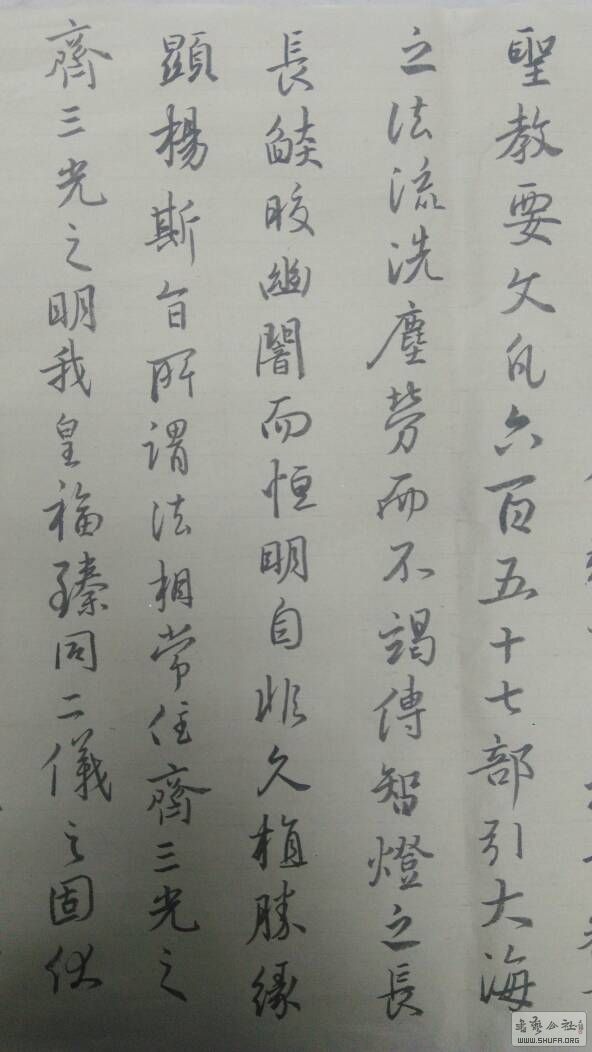 聖教要文凡六百五十七部引大海
之法流洗塵勞而不竭傳智燈之長
長燄晈幽闇而恒明自非久植勝緣
顯楊斯旨所謂法相常住齊三光之
齊三光之明我皇福臻同二儀之固伏
书艺公社
WWW.SHUFA.ORG